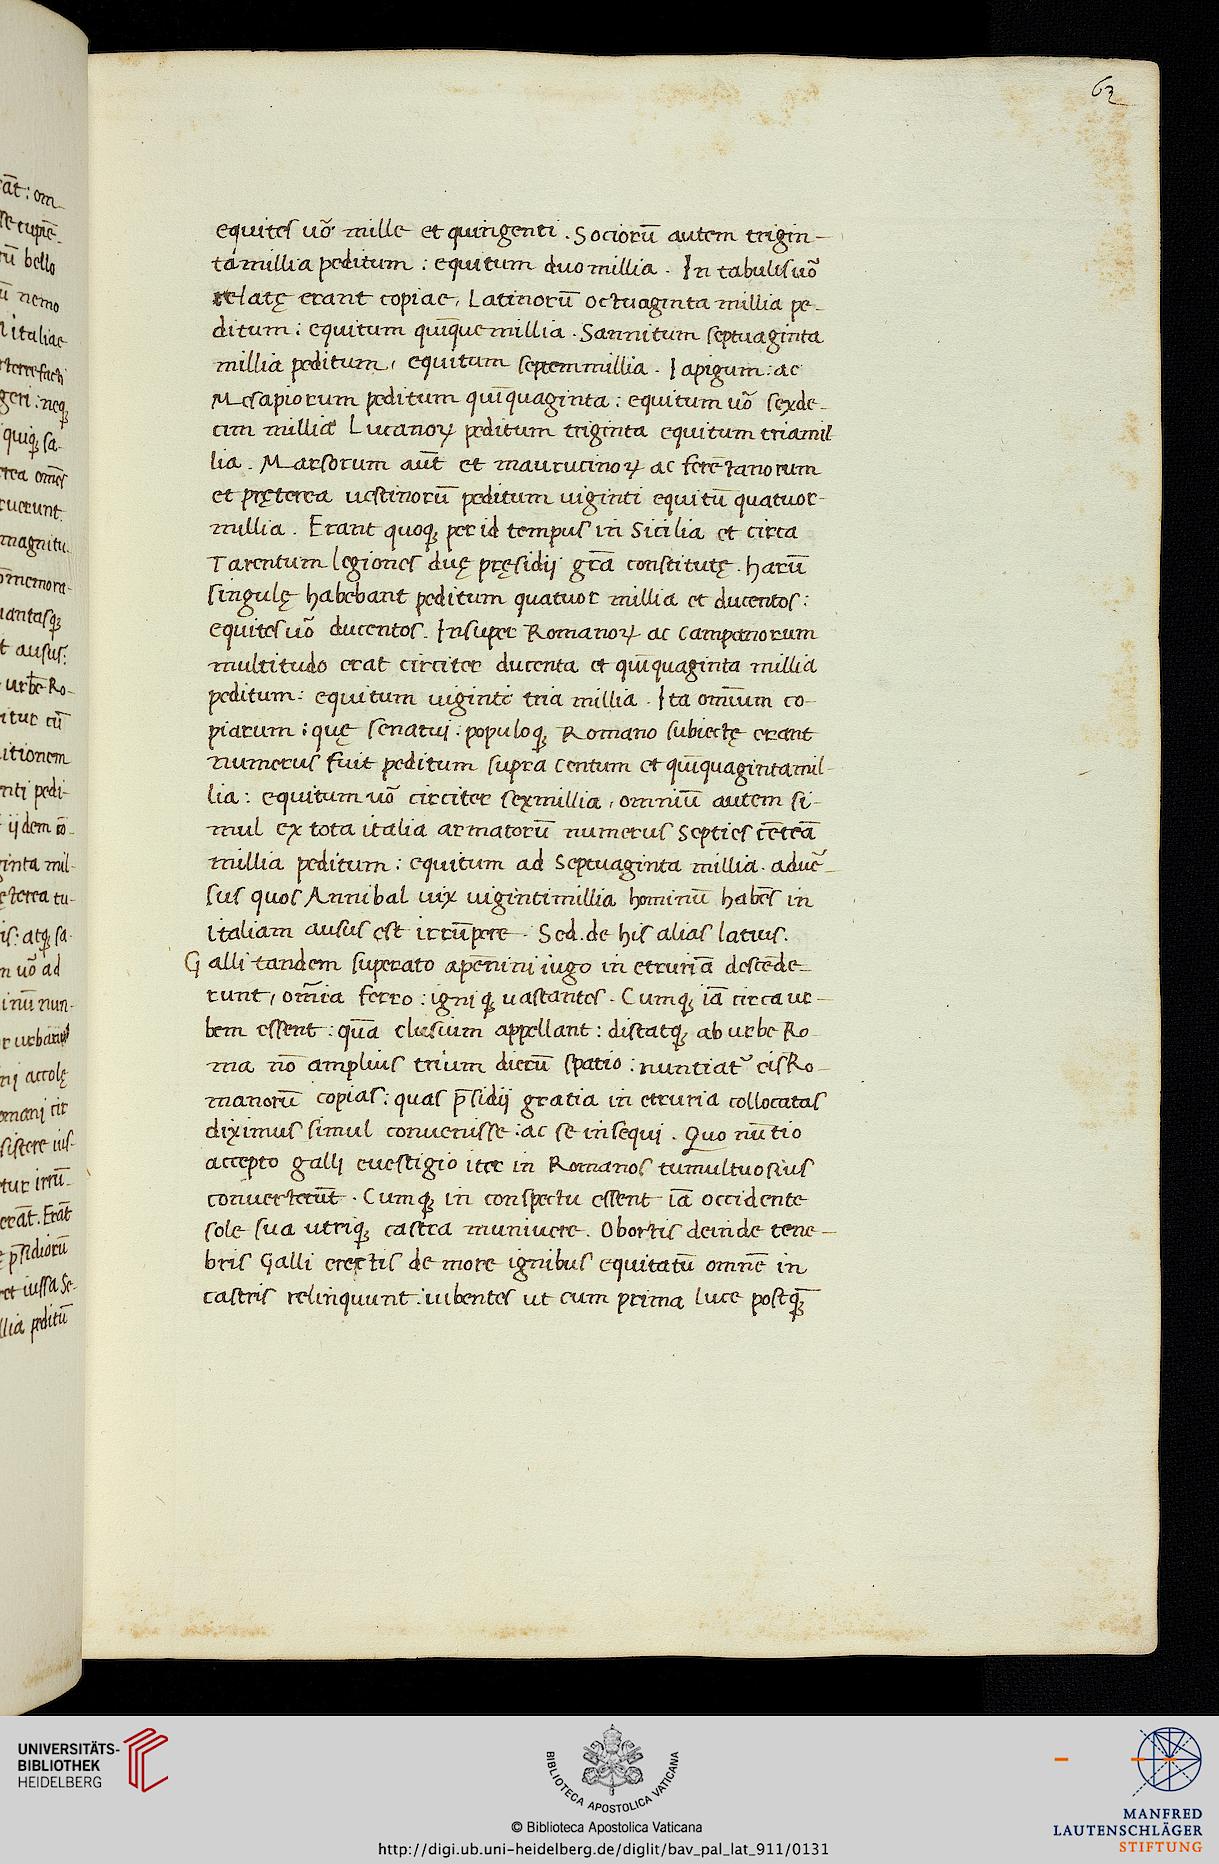 62
equites uõ mille et quingenti . Sociorũ autem trigin-
ta millia peditum : equitum duo millia . In tabulis uõ
relatę erant copiae, Latinorũ octuaginta millia pe-
ditum : equitum quĩque millia . Samnitum septuaginta
millia peditum, equitum septem millia . Iapigum : ac
Mesapiorum peditum quĩquaginta : equitum uõ sexde-
cim millia Lucanoꝝ peditum triginta equitum tria mil
lia . Marsorum aut̃ et maurucinoꝝ ac ferẽtanorum
et pręterea uestinorũ peditum uiginti equitũ quatuor
millia . Erant quoqꝫ per id tempus in Sicilia et circa
Tarentum legiones duę pręsidij gr̃a constitutę . harũ
singulę habebant peditum quatuor millia et ducentos :
equites uõ ducentos . Insuper Romanoꝝ ac Campanorum
multitudo erat circiter ducenta et quĩquaginta millia
peditum : equitum uiginti tria millia . Ita omĩum co-
piarum : quę senatui : populoqꝫ Romano subiectę erant
numerus fuit peditum supra Centum et quĩquaginta mil-
lia : equitum uõ circiter sex millia, omniũ autem si-
mul ex tota italia armatorũ numerus Septies cẽteã
millia peditum : equitum ad Septuaginta millia . aduẽ-
sus quos Annibal uix uiginti millia hominũ habẽs in
italiam ausus est irrũpere . Sed . de his alias latius .
Galli tandem superato apẽnini iugo in etruriã descẽde-
runt, om̃ia ferro : igniqꝫ uastantes . Cumqꝫ iã circa ur-
bem essent : quã clusium appellant : distatqꝫ ab urbe Ro-
ma nõ amplius trium dierũ spatio : nuntiat᷑ eis Ro-
manorũ copias : quas p̃sidij gratia in etruria collocatas
diximus simul conuenisse : ac se insequi . Quo nũtio
accepto galli euestigio iter in Romanos tumultuosius
conuerterũt . Cumqꝫ in conspectu essent iã occidente
sole sua utriqꝫ castra muniuere . Obortis deinde tene-
bris Galli erectis de more ignibus equitatũ omnẽ in
castris relinquunt : iubentes ut cum prima luce postqꝫ̃
UNIVERSITÄTS-
BIBLIOTHEK
HEIDELBERG
BIBLIOTECA APOSTOLICA VATICANA
© Biblioteca Apostolica Vaticana
http://digi.ub.uni-heidelberg.de/diglit/bav_pal_lat_911/0131
MANFRED
LAUTENSCHLÄGER
STIFTUNG